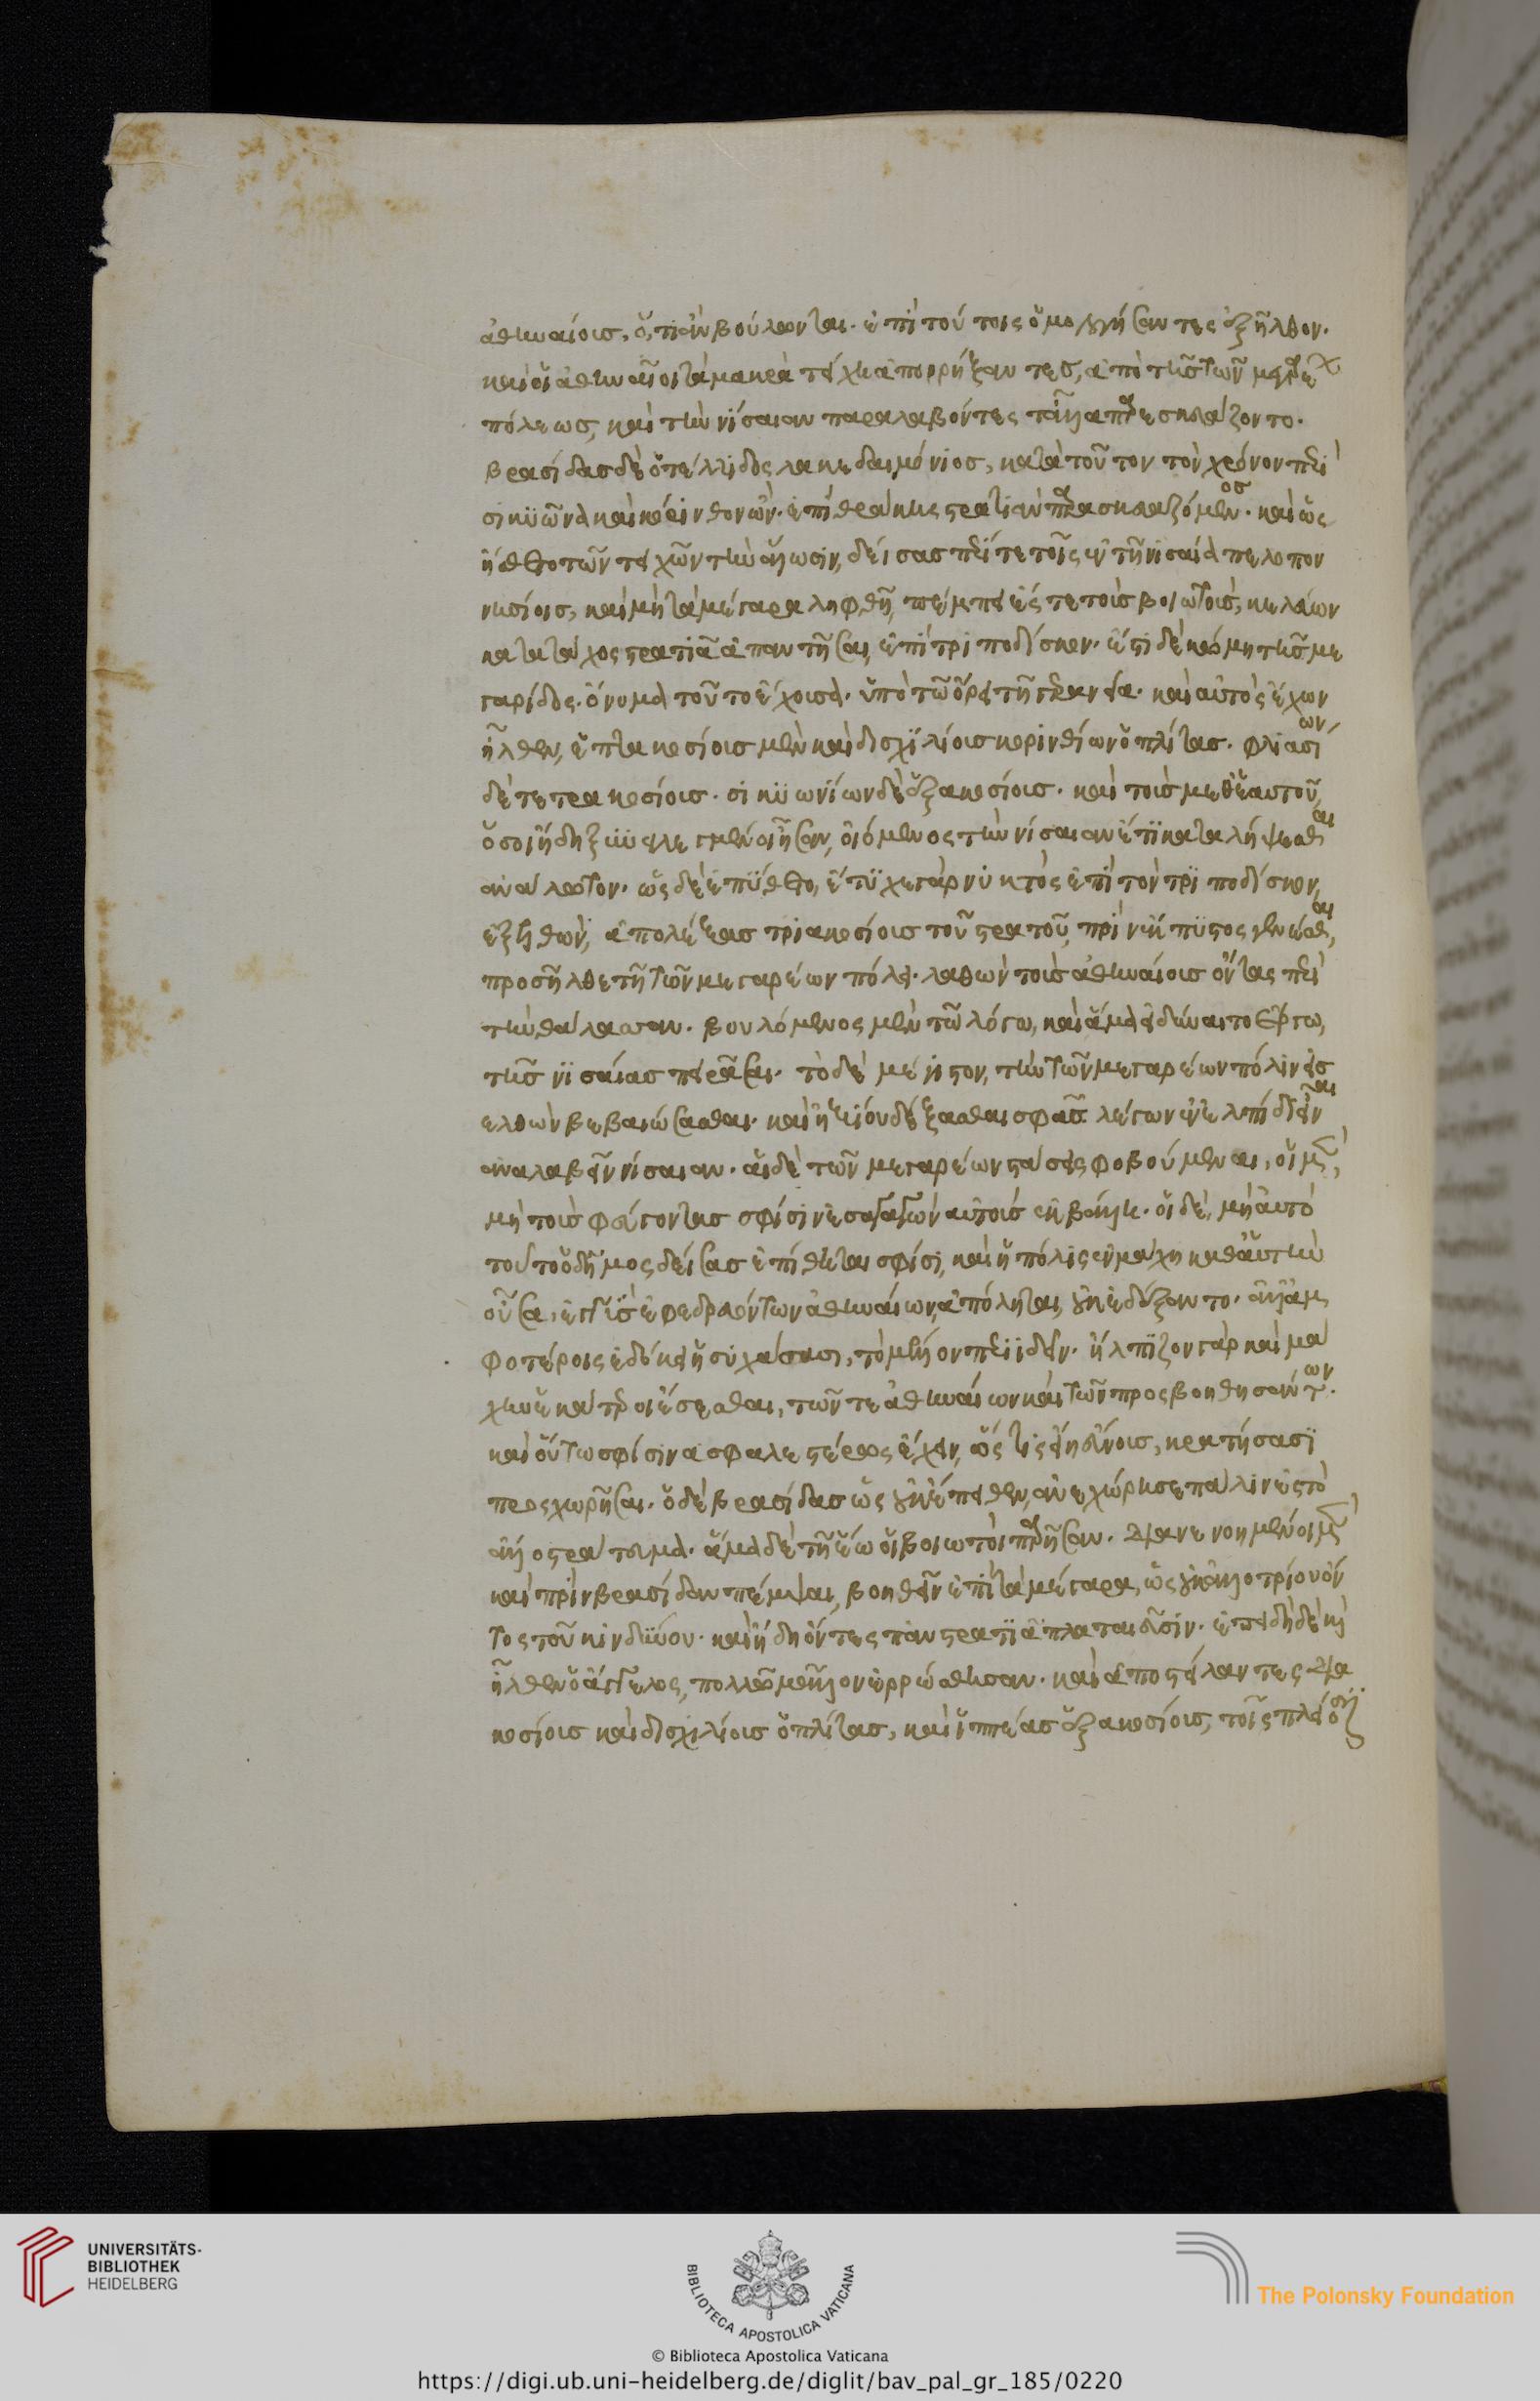 ἀθηναίοις, ὅ,τι ἂν βούλωνται. ἐπὶ τούτοις ὁμολογήσαντες ἐξῆλθον.
καὶ οἱ ἀθηναῖοι τὰ μακρὰ τείχη ἀπορρήξαντες, ἀπὸ τῆς τῶν μεγαρέων
πόλεως, καὶ τὴν νίσαιαν παραλαβόντες τἄλλα παρεσκευάζοντο.
βρασίδας δὲ ὁ τέλλιδος λακεδαιμόνιος, κατὰ τοῦτον τὸν χρόνον περὶ
σικυῶνα καὶ κόρινθον ὤν. ἐπὶ θράκης στρατιὰν παρασκευαζόμενος. καὶ ὡς
ἤσθετο τῶν τειχῶν τὴν ἅλωσιν, δείσας περί τε τοῖς ἐν τῇ νισαίᾳ πελοπον
νησίοις, καὶ μὴ τὰ μέγαρα ληφθῇ, πέμπει ἔς τε τοὺς βοιωτοὺς, κελεύων
κατὰ τάχος στρατιᾷ ἀπαντῆσαι, ἐπὶ τριποδίσκον. ἔστι δὲ κώμη τῆς με
γαρίδος. ὄνομα τοῦτο ἔχουσα. ὑπὸ τῷ ὄρει τῇ γερανείᾳ. καὶ αὐτὸς ἔχων
ἦλθεν, ἑπτακοσίους μὲν καὶ δισχιλίους κορινθίων ὁπλίτας. φλιασίων
δὲ τετρακοσίους. σικυωνίων δὲ ἑξακοσίους. καὶ τοὺς μεθ' ἑαυτοῦ,
ὅσοι ἤδη ξυνειλεγμένοι ἦσαν, οἰόμενος τὴν νίσαιαν ἔτι καταλήψεσθαι
ἀνάλωτον. ὡς δὲ ἐπύθετο, ἔτυχε γὰρ νυκτὸς ἐπὶ τὸν τριποδίσκον,
ἐξελθὼν, ἀπολέξας τριακοσίους τοῦ στρατοῦ, πρὶν ἔκπυστος γενέσθαι,
προσῆλθε τῇ τῶν μεγαρέων πόλει. λαθὼν τοὺς ἀθηναίους ὄντας περὶ
τὴν θάλασσαν. βουλόμενος μὲν τῷ λόγῳ, καὶ ἅμα εἰ δύναιτο ἔργῳ,
τῆς νισαίας πειρᾶσαι. τὸ δὲ μέγιστον, τὴν τῶν μεγαρέων πόλιν ἐσ
ελθὼν βεβαιώσασθαι. καὶ ἠξίου δέξασθαι σφᾶς λέγων ἐν ἐλπίδι εἶναι
ἀναλαβεῖν νίσαιαν. αἱ δὲ τῶν μεγαρέων στάσεις φοβούμεναι, οἱ μὲν,
μὴ τοὺς φεύγοντας σφίσιν ἐσαγαγὼν αὐτοὺς ἐκβάλῃ. οἱ δὲ, μὴ αὐτὸ
τοῦτο ὁ δῆμος δείσας ἐπίθηται σφίσι, καὶ ἡ πόλις ἐν μάχῃ καθ' αὑτὴν
οὖσα, ἐγγὺς ἐφεδρευόντων ἀθηναίων, ἀπόληται, οὐκ ἐδέξαντο. ἀλλ' ἀμ
φοτέροις ἐδόκει ἡσυχάσασι, τὸ μέλλον περιϊδεῖν. ἤλπιζον γὰρ καὶ μά
χην ἑκάτεροι ἔσεσθαι, τῶν τε ἀθηναίων καὶ τῶν προσβοηθησάντων.
καὶ οὕτω σφίσιν ἀσφαλεστέρως ἔχειν, ὥς τις εἴη εὔνους, κρατήσασι
προσχωρῆσαι. ὁ δὲ βρασίδας ὡς οὐκ ἔπειθεν, ἀνεχώρησε πάλιν ἐς τὸ
ἄλλο στράτευμα. ἅμα δὲ τῇ ἕῳ οἱ βοιωτοὶ παρῆσαν. διανενοημένοι μὲν
καὶ πρὶν βρασίδαν πέμψαι, βοηθεῖν ἐπὶ τὰ μέγαρα, ὡς οὐκ ἀλλοτρίου ὄν
τος τοῦ κινδύνου. καὶ ἤδη ὄντες πανστρατιᾷ πλαταιᾶσιν. ἐπειδὴ δὲ καὶ
ἦλθεν ὁ ἄγγελος, πολλῷ μᾶλλον ἐρρώσθησαν. καὶ ἀποστείλαντες δια
κοσίους καὶ δισχιλίους ὁπλίτας, καὶ ἱππέας ἑξακοσίους, τοῖς πλείοσιν
UNIVERSITÄTS-
BIBLIOTHEK
HEIDELBERG
BIBLIOTECA APOSTOLICA VATICANA
The Polonsky Foundation
© Biblioteca Apostolica Vaticana
https://digi.ub.uni-heidelberg.de/diglit/bav_pal_gr_185/0220